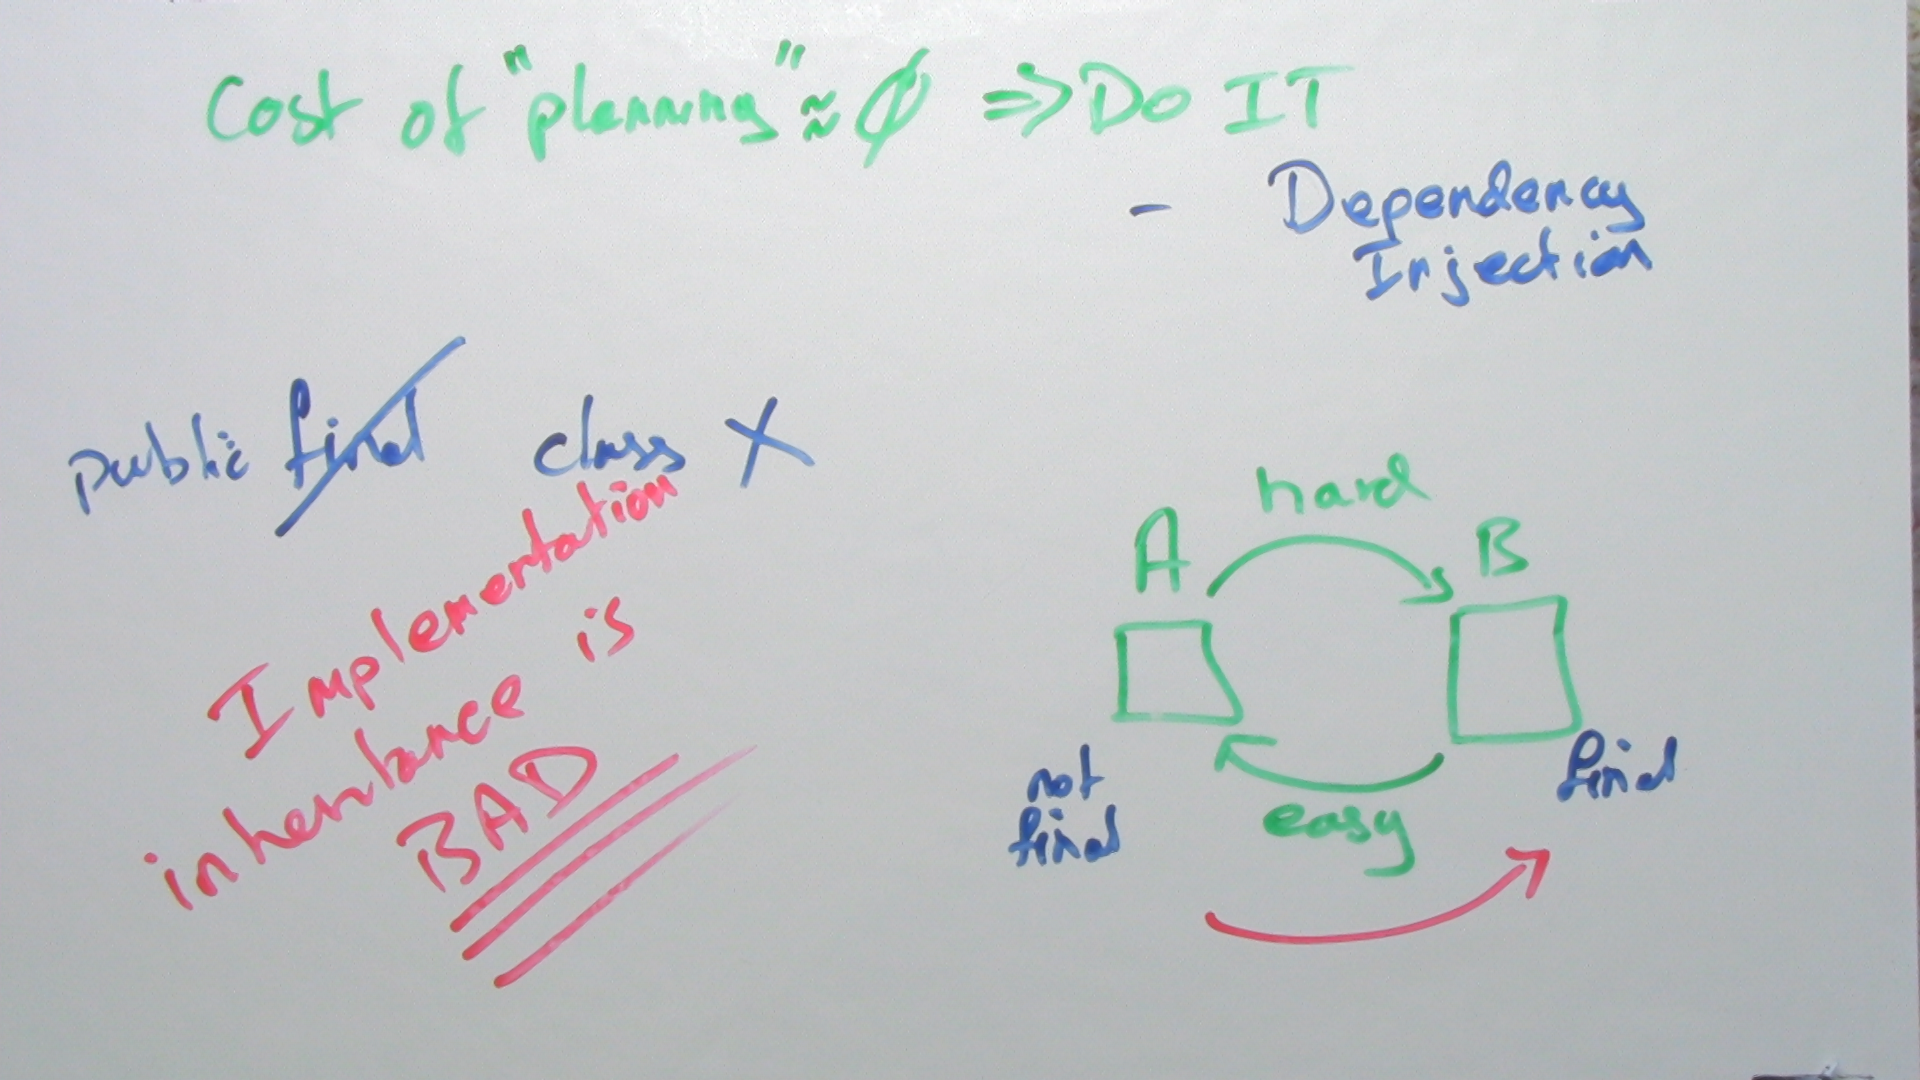 Cost of "planning" ≈ Ø ⇒ Do IT
- Dependency
Injection
public final class X
Implementation
inheritance is
BAD
hard
A B
not
final
final
easy